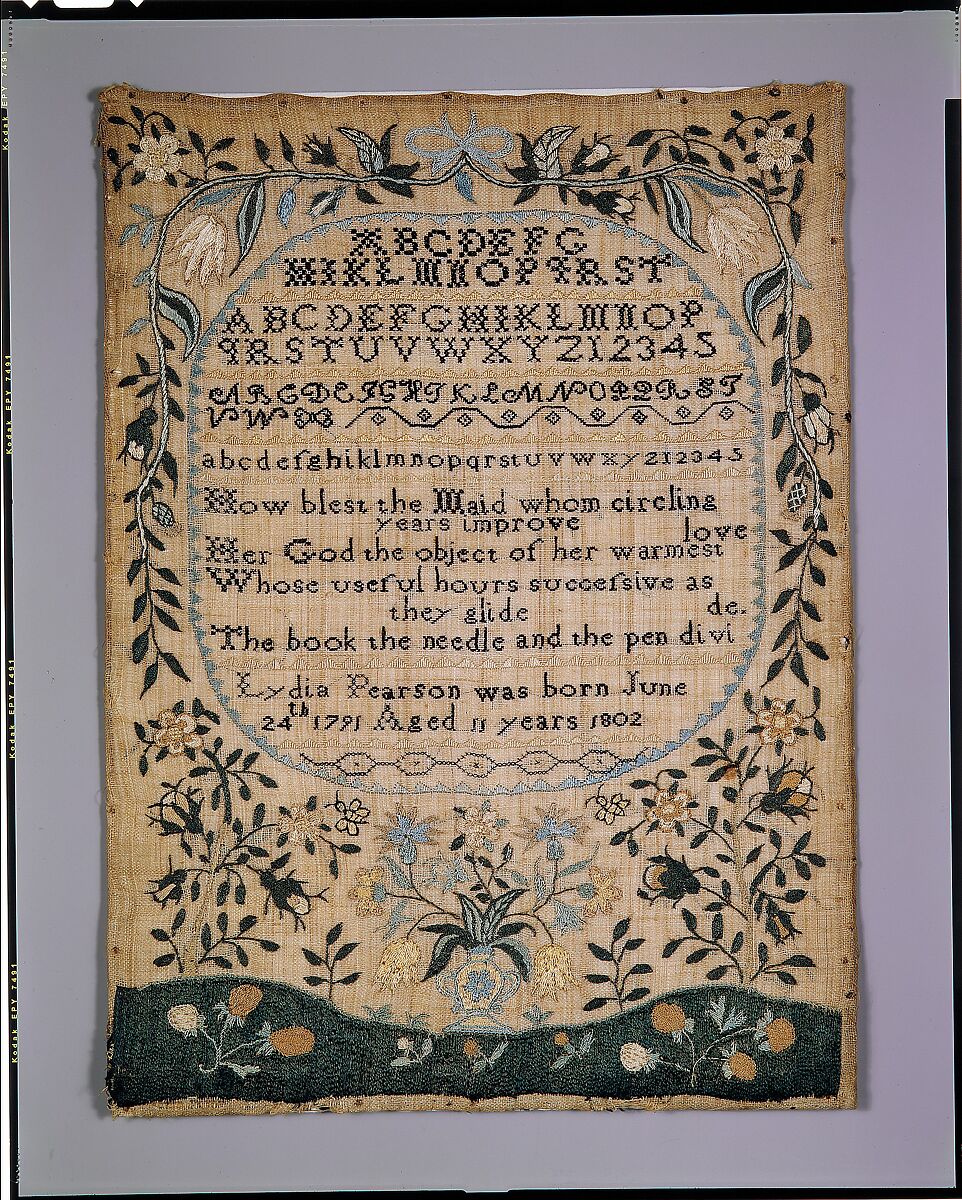 ABCDEFG
HIKLMNOPQRST
ABCDEFGHIKLMNOP
QRSTUVWXYZ12345
ABCDEFGHIKLMNOPQRST
VWX
abcdefghiklmnopqrstuvwxyz12345
How blest the Maid whom circling
years improve
love
Her God the object of her warmest
Whose useful hours succeſsive as
they glide
de.
The book the needle and the pen divi
Lydia Pearson was born June
24th 1791 Aged 11 years 1802
Kodak EPY 7491
Kodak EPY 7491
Kodak EPY 7491
Kodak EPY 7491